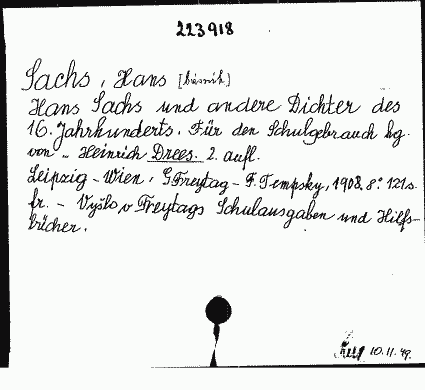 223918
Sachs, Hans [básník]
Hans Sachs und andere Dichter des
16. Jahrhunderts. Für den Schulgebrauch hg.
von „ Heinrich Drees. 2. aufl.
Leipzig - Wien, G Freytag - F. Tempsky, 1908. 8° 121 s.
fr. - Vyšlo v Freytags Schulausgaben und Hilfs-
bücher.
10.11.49.